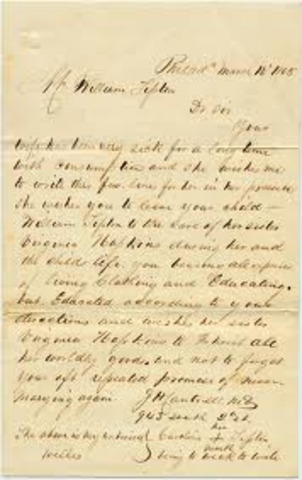 Philad^a March 12^th 1865
Mr William Tipton
Dr Sir
Your
wife has been very sick for a long time
with consumption and she wishes me
to write this few lines for her in her presence
she wishes you to leave your child –
William Tipton to the care of her sister
Eugenia Hopkins during her and
the childs life, you bearing all expense
of living Clothing and Educating,
but Educated according to your
directions and wishes her sister
Eugenia Hopkins to Inherit all
her worldly goods, and not to forget
your oft repeated promises of never
marrying again
J H MD
943 south 2^d st
The above is my Caroline her + mark Tipton
Witness being to weak to write